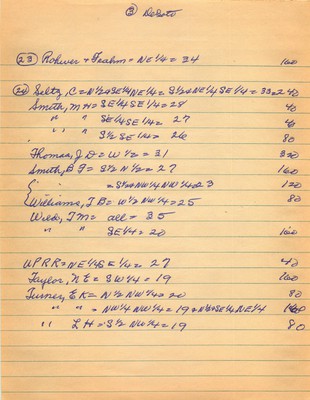 ③ DeSoto
(23) Rohwer + Frahm = NE 1/4 = 34 160
(24) Seltz, C = N 1/2 + SE 1/4 NE 1/4 = S 1/2 + NE 1/4 SE 1/4 = 33 = 240
Smith, M H = SE 1/4 SE 1/4 = 28 40
" " SE 1/4 SE 1/4 = 27 40
" " S 1/2 SE 1/4 = 26 80
Thomas, J D = W 1/2 = 31 320
Smith, B F = S 1/2 N 1/2 = 27 160
{ " = S 1/2 + NW 1/4 NW 1/4 23 120
{ Williams, T B = W 1/2 NW 1/4 = 25 80
Wilds, T M = all = 35
" " SE 1/4 = 20 160
UPRR = NE 1/4 SE 1/4 = 27 40
Taylor, N E = SW 1/4 = 19 160
Turner, E K = N 1/2 NW 1/4 = 20 80
" " = NW 1/4 NW 1/4 = 19 + N 1/2 + SE 1/4 NE 1/4 160
" L H = S 1/2 NW 1/4 = 19 80